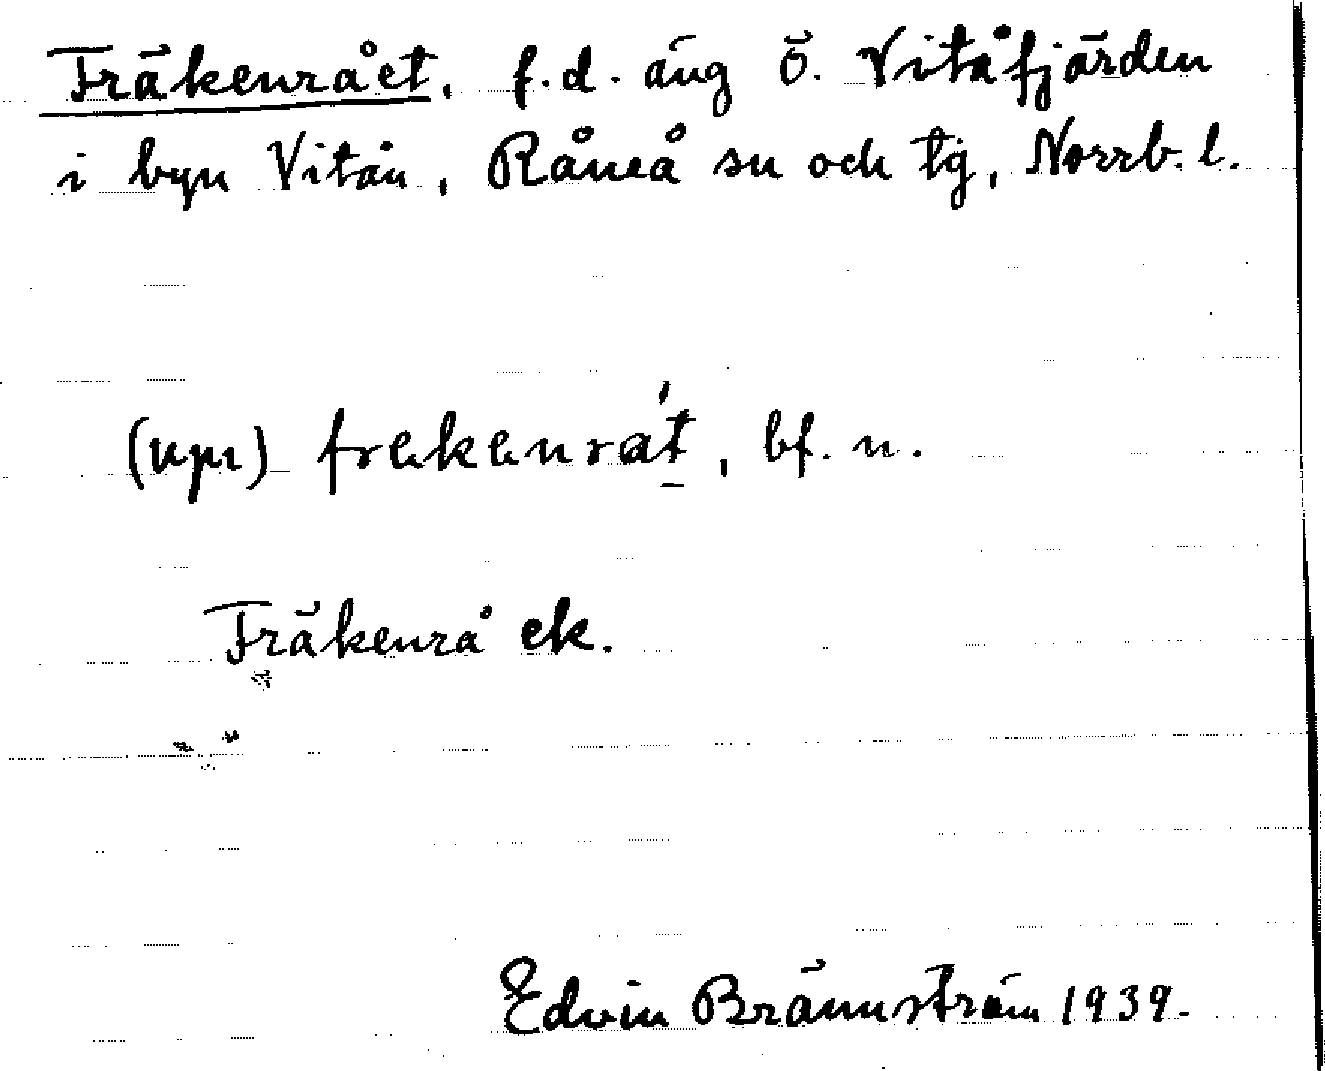 Fräkenrået, f.d. äng ö. Vitåfjärden
i byn Vitån, Råneå sn och tg, Norrb. l.
(upr) frekenrat, bf. n.
Fräkenrå ek.
Edvin Brännström 1939.